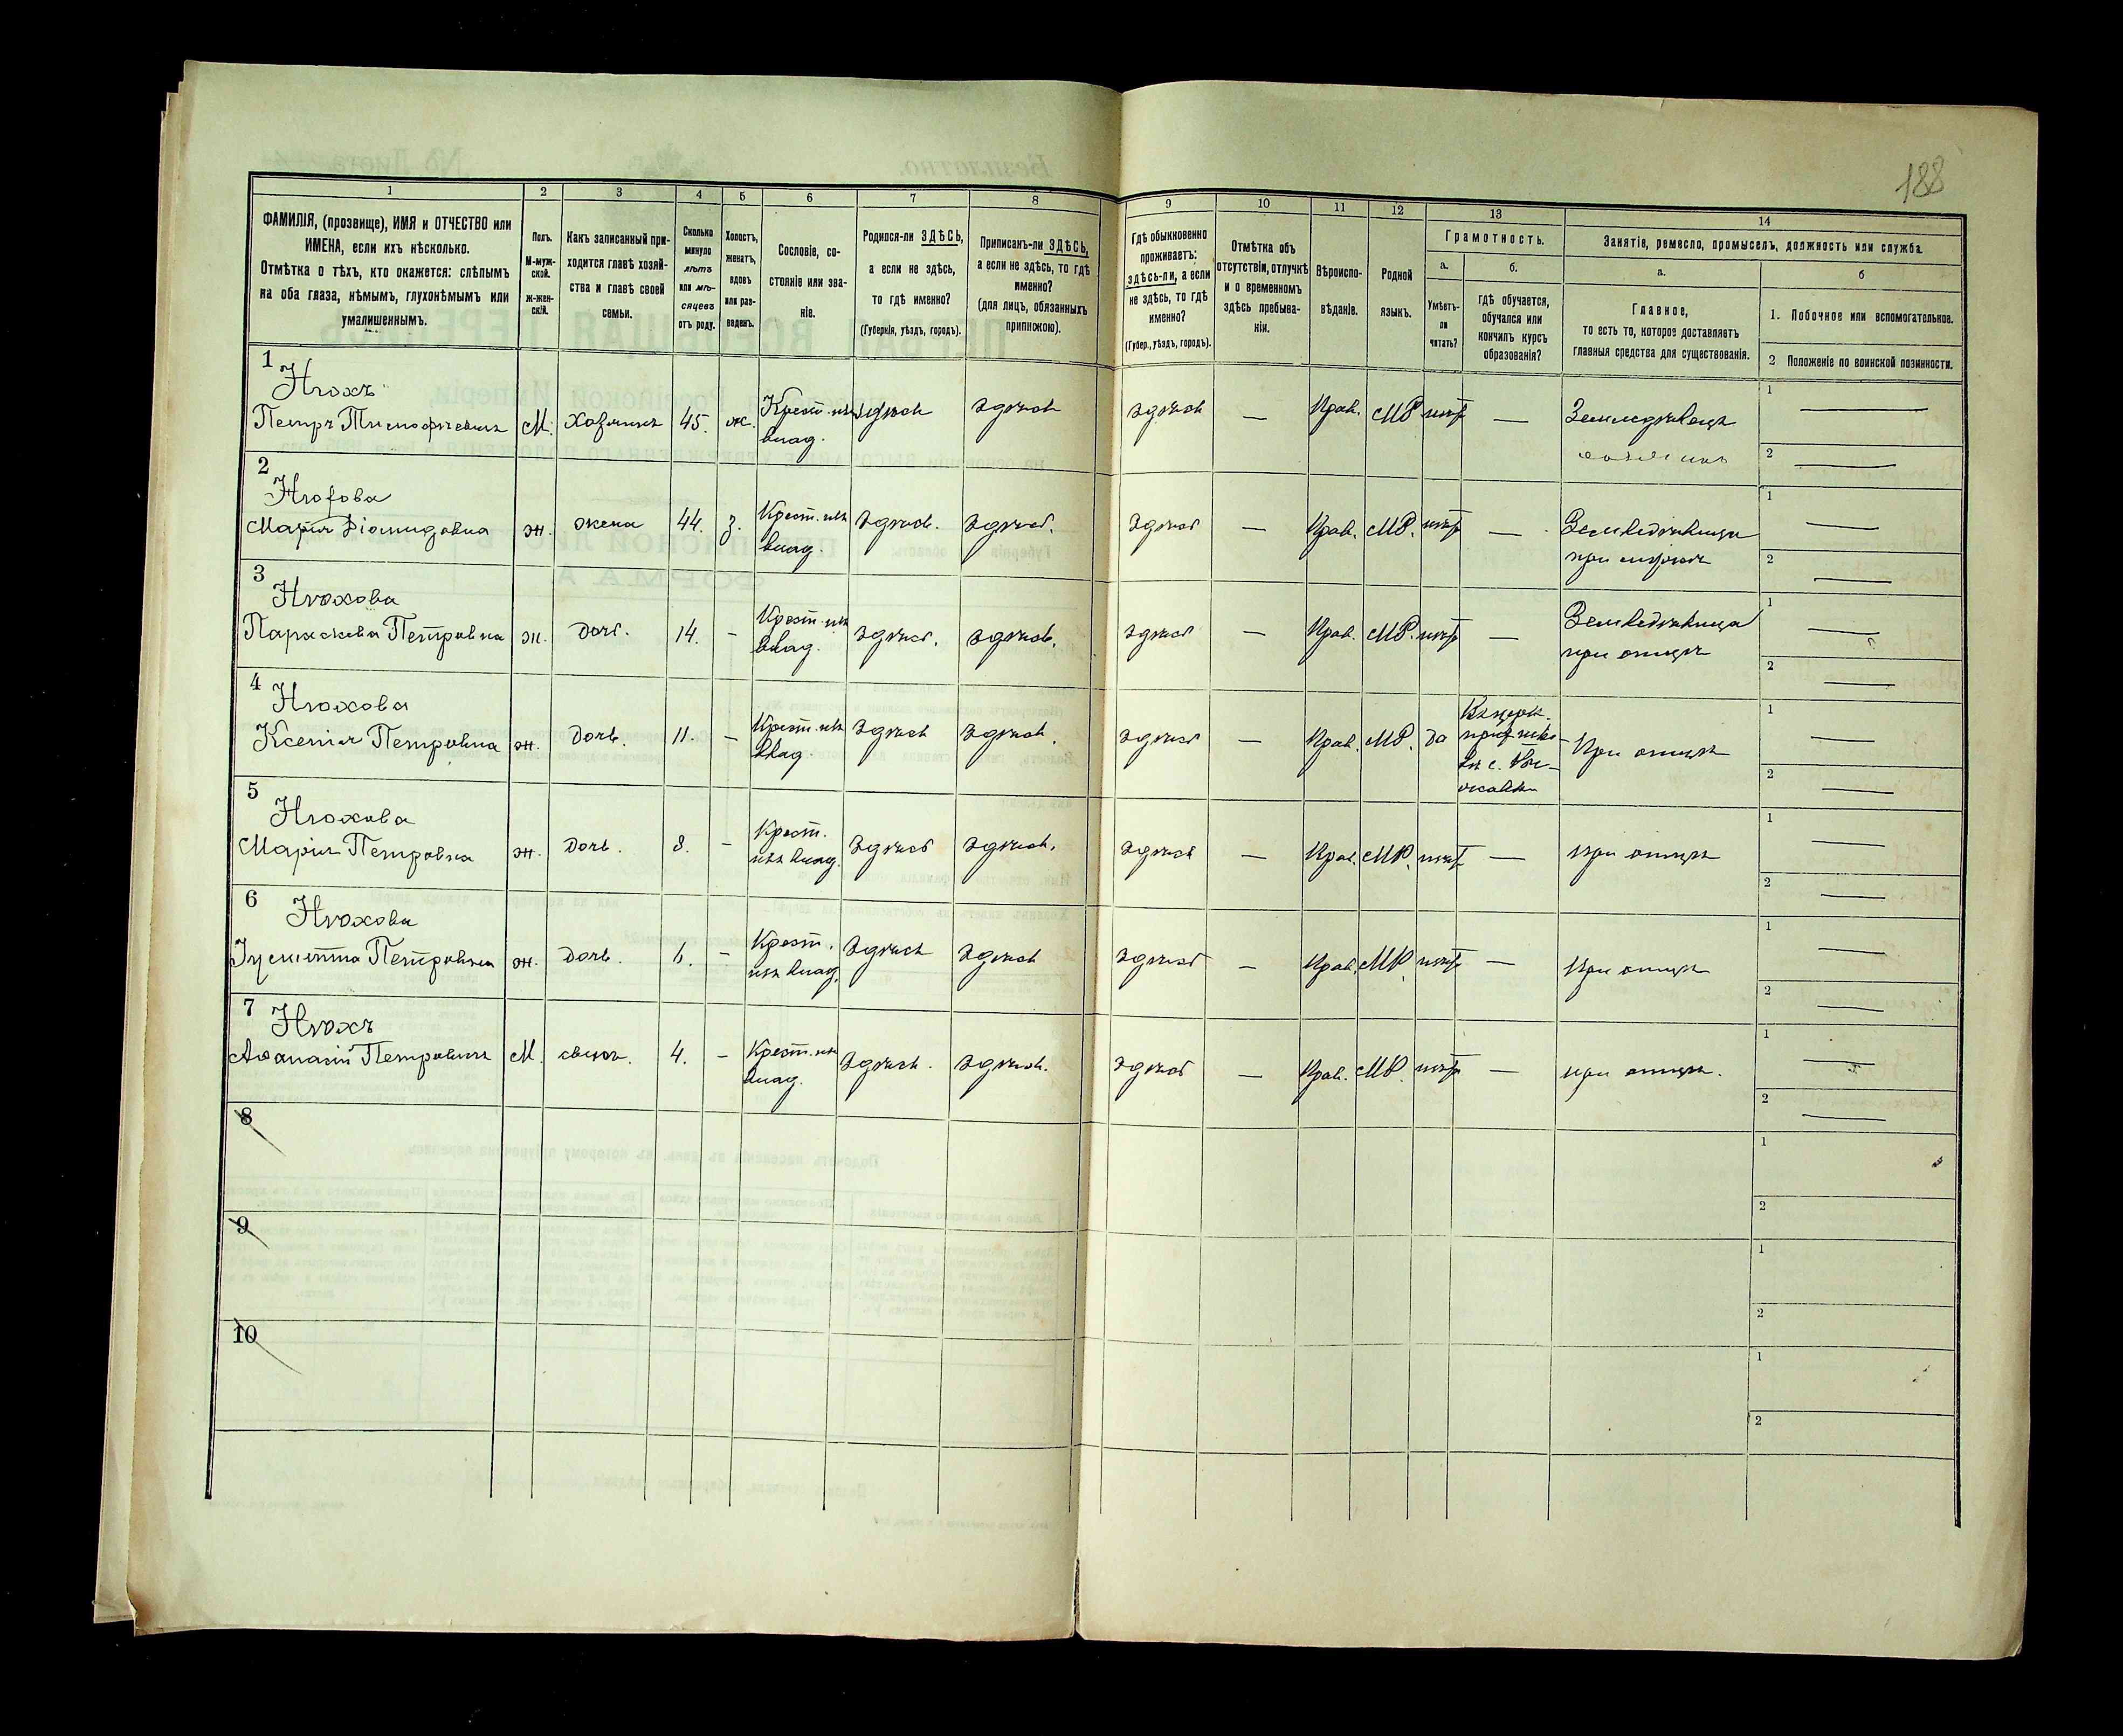 188
1 2 3 4 5 6 7 8 9 10 11 12 13 14
ФАМИЛІЯ, (прозвище), ИМЯ и ОТЧЕСТВО или
ИМЕНА, если ихъ нѣсколько.
Отмѣтка о тѣхъ, кто окажется: слѣпымъ
на оба глаза, нѣмымъ, глухонѣмымъ или
умалишеннымъ.
Полъ.
М-муж-
ской.
ж-жен-
скій.
Какъ записанный при-
ходится главѣ хозяй-
ства и главѣ своей
семьи.
Сколько
минуло
лѣтъ
или мѣ-
сяцевъ
отъ роду.
Холостъ,
женатъ,
вдовъ
или раз-
веденъ.
Сословіе, со-
стояніе или зва-
ніе.
Родился-ли ЗДѢСЬ,
а если не здѣсь,
то гдѣ именно?
(Губернія, уѣздъ, городъ).
Приписанъ-ли ЗДѢСЬ,
а если не здѣсь, то гдѣ
именно?
(для лицъ, обязанныхъ
припиской).
Гдѣ обыкновенно
проживаетъ:
здѣсь-ли, а если
не здѣсь, то гдѣ
именно?
(Губер., уѣздъ, городъ).
Отмѣтка объ
отсутствіи, отлучкѣ
и о временномъ
здѣсь пребыва-
ніи.
Вѣроиспо-
вѣданіе.
Родной
языкъ.
Грамотность.
а.
Умѣетъ-
ли
читать?
б.
Гдѣ обучается,
обучался или
кончилъ курсъ
образованія?
Занятіе, ремесло, промыселъ, должность или служба.
а.
Главное,
то есть то, которое доставляетъ
главныя средства для существованія.
б
1. Побочное или вспомогательное.
2 Положеніе по воинской повинности.
1
Петръ Тимофѣевичъ М. Хозяинъ 45. ж. Крест. изъ здѣсь здѣсь здѣсь — Прав. МР. нѣтъ — Земледѣлецъ 1 —
влад. хозяинъ 2 —
2
Марія ж. жена 44. з. Крест. изъ здѣсь. здѣсь. здѣсь — Прав. МР. нѣтъ — 1 —
влад. при мужѣ 2 —
3 Нюхова
Параскева Петровна ж. дочь. 14. — Крест. изъ здѣсь. здѣсь. здѣсь — Прав. МР. нѣтъ — 1 —
влад. при отцѣ 2 —
4 Нюхова
Ксенія Петровна ж. дочь. 11. — Крест. изъ здѣсь здѣсь. здѣсь — Прав. МР. да При отцѣ 1 —
влад. 2 —
5 Нюхова
Марія Петровна ж. дочь. 8. — Крест. здѣсь здѣсь. здѣсь — Прав. МР. нѣтъ — при отцѣ 1 —
изъ влад. 2 —
6 Нюхова
Петровна ж. дочь. 6. — Крест. здѣсь здѣсь здѣсь — Прав. МР. нѣтъ — при отцѣ 1 —
изъ влад. 2 —
7 Нюхъ
Афанасій Петровичъ М. сынъ. 4. — Крест. изъ здѣсь. здѣсь. здѣсь — Прав. МР. нѣтъ — при отцѣ. 1 —
влад. 2 —
8 1
2
9 1
2
10 1
2